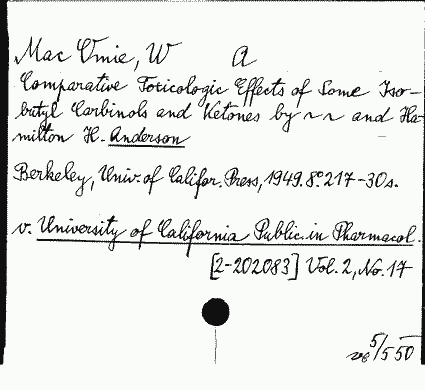 Mac Omie, W A
Comparative Toxicologic Effects of Some Iso-
butyl Carbinols and Ketones by ~ ~ and Ha-
milton H. Anderson
Berkeley, Univ. of Califor. Press, 1949. 8° 217-30 s.
v. University of California Public. in Pharmacol.
[2-202083] Vol. 2, No. 17
5/550